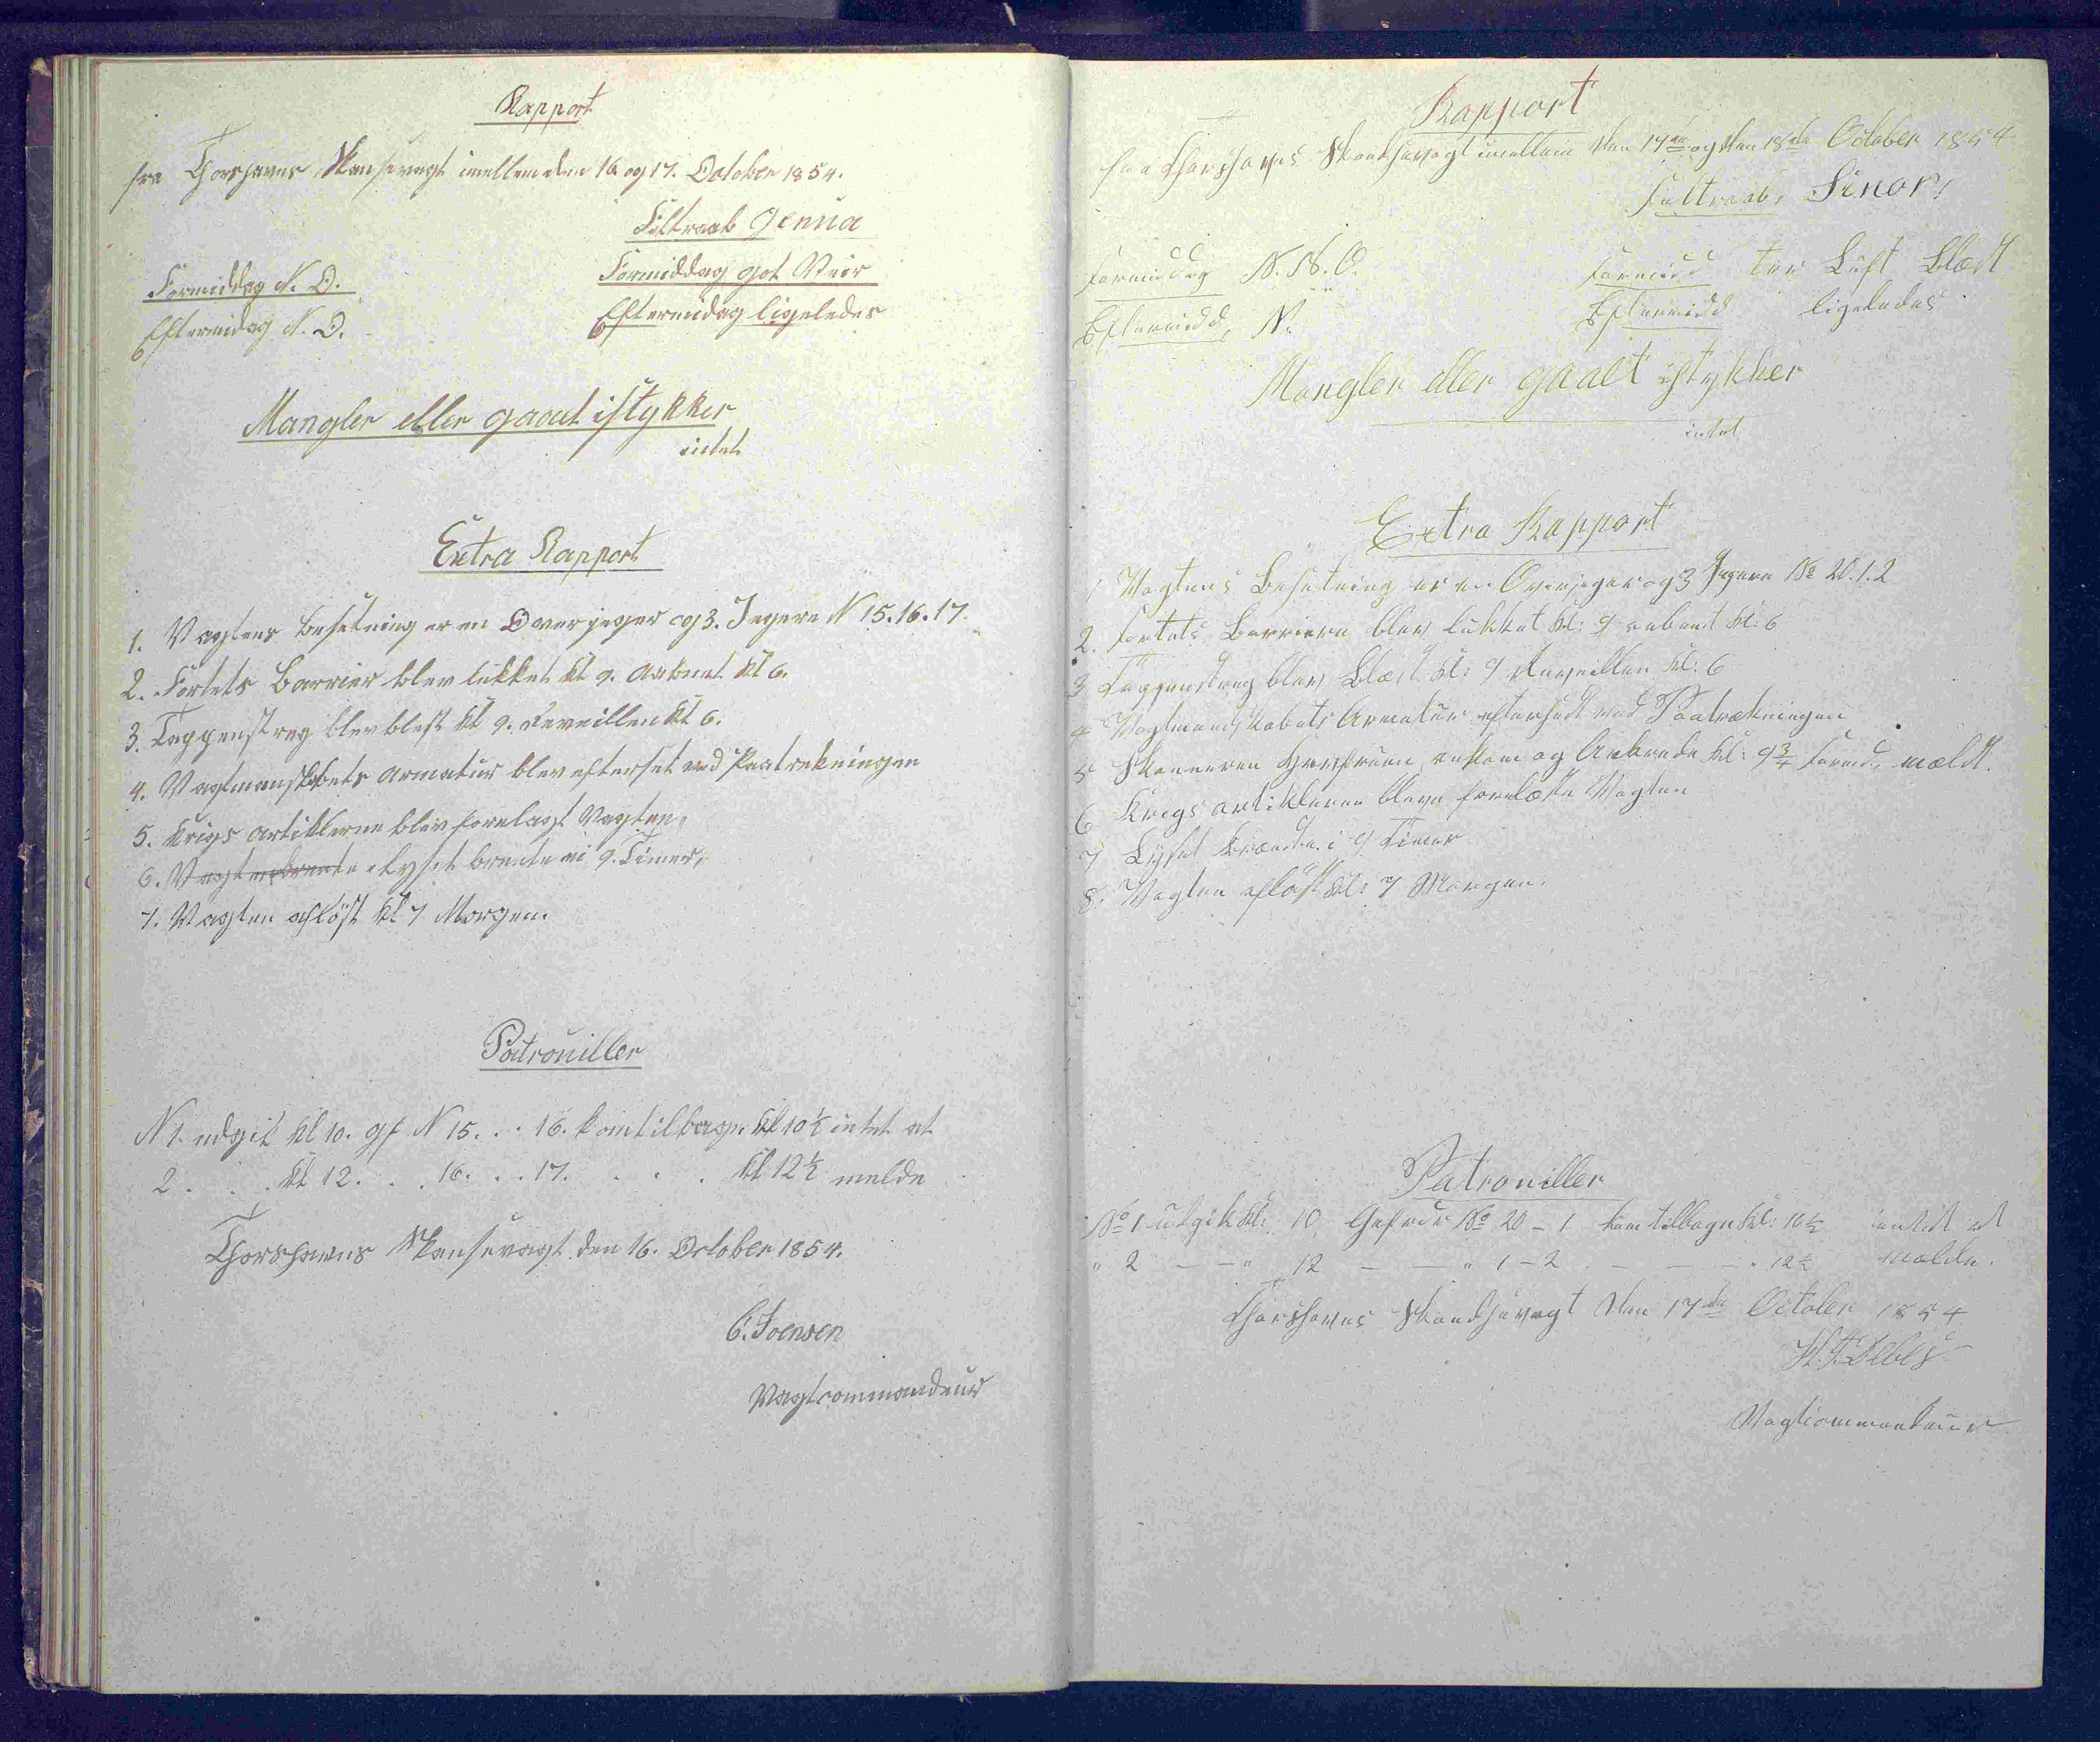 Rapport
fra Thorshavns Skansevagt imellem den 16 og 17. October 1854.
Feltraab Genua
Formiddag N. O.
Formiddag got Veir
Eftermidag N. O.
Eftermidag ligeledes
Mangler eller gaaet istykker
intet
Extra Rapport
1. Vagtens besetning er en Overjeger og 3. Jegere N 15. 16. 17.
2. Fortets Barrier blev lukket kl 9. aabnet kl 6.
3. Tappenstreg blev blest kl 9. Reveillen kl 6.
4. Vagtmanskabets Armatur blev efterset ved Paatrekningen
5. Krigs Artiklerne blev forelagt Vagten.
6. Vagten brente Lyset brente i 9. Timer,
7. Vagten afløst kl 7 Morgen.
Patrouiller
N 1. udgik kl 10. gf N 15. . . 16. kom tilbage kl 10½ intet at
2 . . . kl 12. . . 16. . . 17. . . . kl 12½ melde
Thorshavns Skansevagt den 16. October 1854.
C. Joensen
Vagtcommandeur
Rapport
fra Thorshavns Skandsevagt imellem den 17de og den 18de October 1854
Feltraab, Sinor!
Formiddag N. N. O.
Formidd tør Luft Blæst
Eftermidd, N.
Eftermidd ligeledes
Mangler eller gaaet istykker
intet
Extra Rapport
1 Vagtens Besetning er en Overjeger og 3 Jegere No 20. 1. 2
2. Fortets Barriere blev lukket kl: 9 aabent kl: 6
3 Tappenstreg blev Blæst kl: 9 Reveillen kl: 6
4 Vagtmandskabets Armatur efterseet ved Paatrækningen
5 Skonneren Havfruen ankom og Ankrede kl: 9¾ Formd, mældt.
6 Krigs artiklerne bleve forelæste Vagten
7 Lyset brændte i 9 Timer
8. Vagten afløst kl: 7 Morgen.
Patrouiller
No 1 udgik kl: 10 Gefrer No 20 - 1 kom tilbage kl: 10½ at
" 2 — — " 12 — — " 1 - 2 — — — " 12½ mælde.
Thorshavns Skandsevagt den 17de October 1854
Debes
Vagtcommandeur